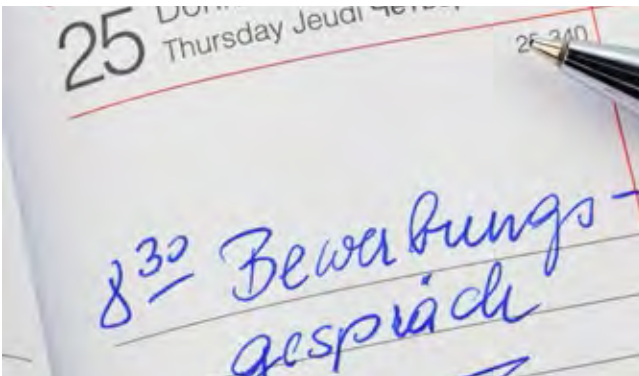 25
Thursday Jeudi
8³⁰ Bewerbungs-
gespräch